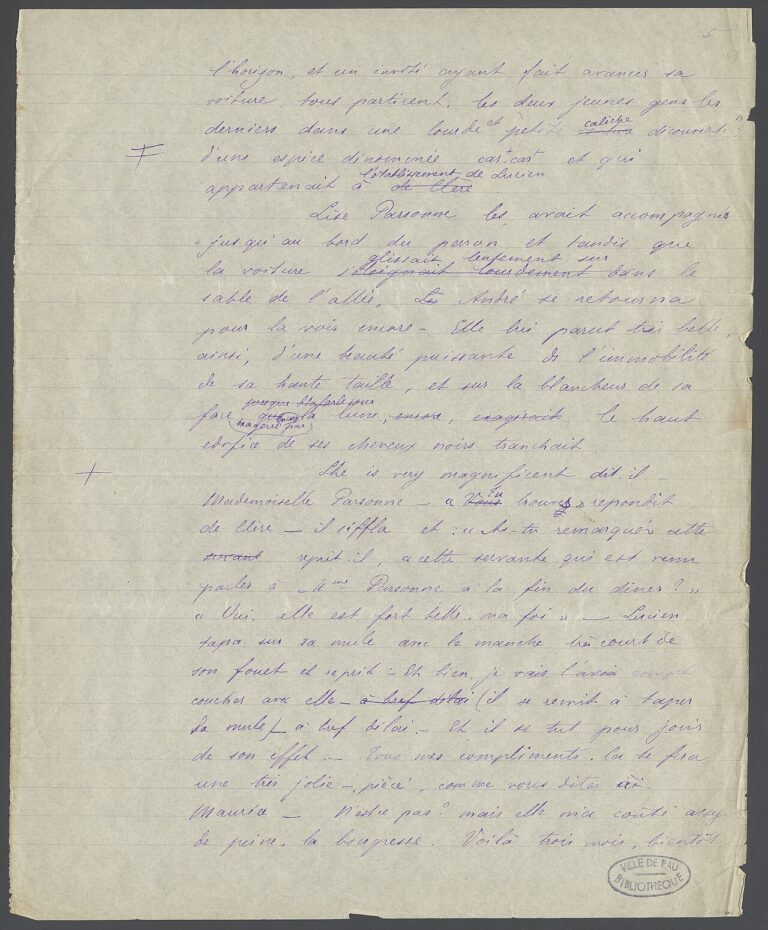 5
l'horizon, et un invité ayant fait avancer sa
voiture, tous partirent. les deux jeunes gens les
derniers dans une lourde et petite calèche découverte
d'une espèce dénommée car-car et qui
appartenait à l'établissement de Lucien de Clère
Lise Parsonne les avait accompagnés
jusqu'au bord du perron et tandis que
la voiture glissait lentement sur s'éloignait lourdement dans le
sable de l'allée, André se retourna
pour la voir encore - Elle lui parut très belle,
ainsi, d'une beauté puissante de l'immobilité
de sa haute taille, et sur la blancheur de sa
face exagérée par la lune, encore, exagérait le haut
édifice de ses cheveux noirs tranchait
She is very magnificent dit-il -
Mademoiselle Parsonne - « répondit
de Clère - il siffla et : « As-tu remarqué cette
suivant reprit-il, « cette servante qui est venu
parler à Mme Parsonne à la fin du dîner? »
« Oui, elle est fort belle, ma foi » - Lucien
tapa sur sa mule avec le manche très court de
son fouet et reprit : Eh bien, je vais
coucher avec elle - à bref délai (il se remit à taper
la mule) - à bref délai - Et il se tut pour jouir
de son effet - Tous mes compliments. Ca te fera
une très jolie - pièce, comme vous dites ici.
Maurice - N'est-ce pas? mais elle m'a coûté assez
de peine, la bougresse. Voilà trois mois, bientôt
VILLE DE PAU
BIBLIOTHÈQUE